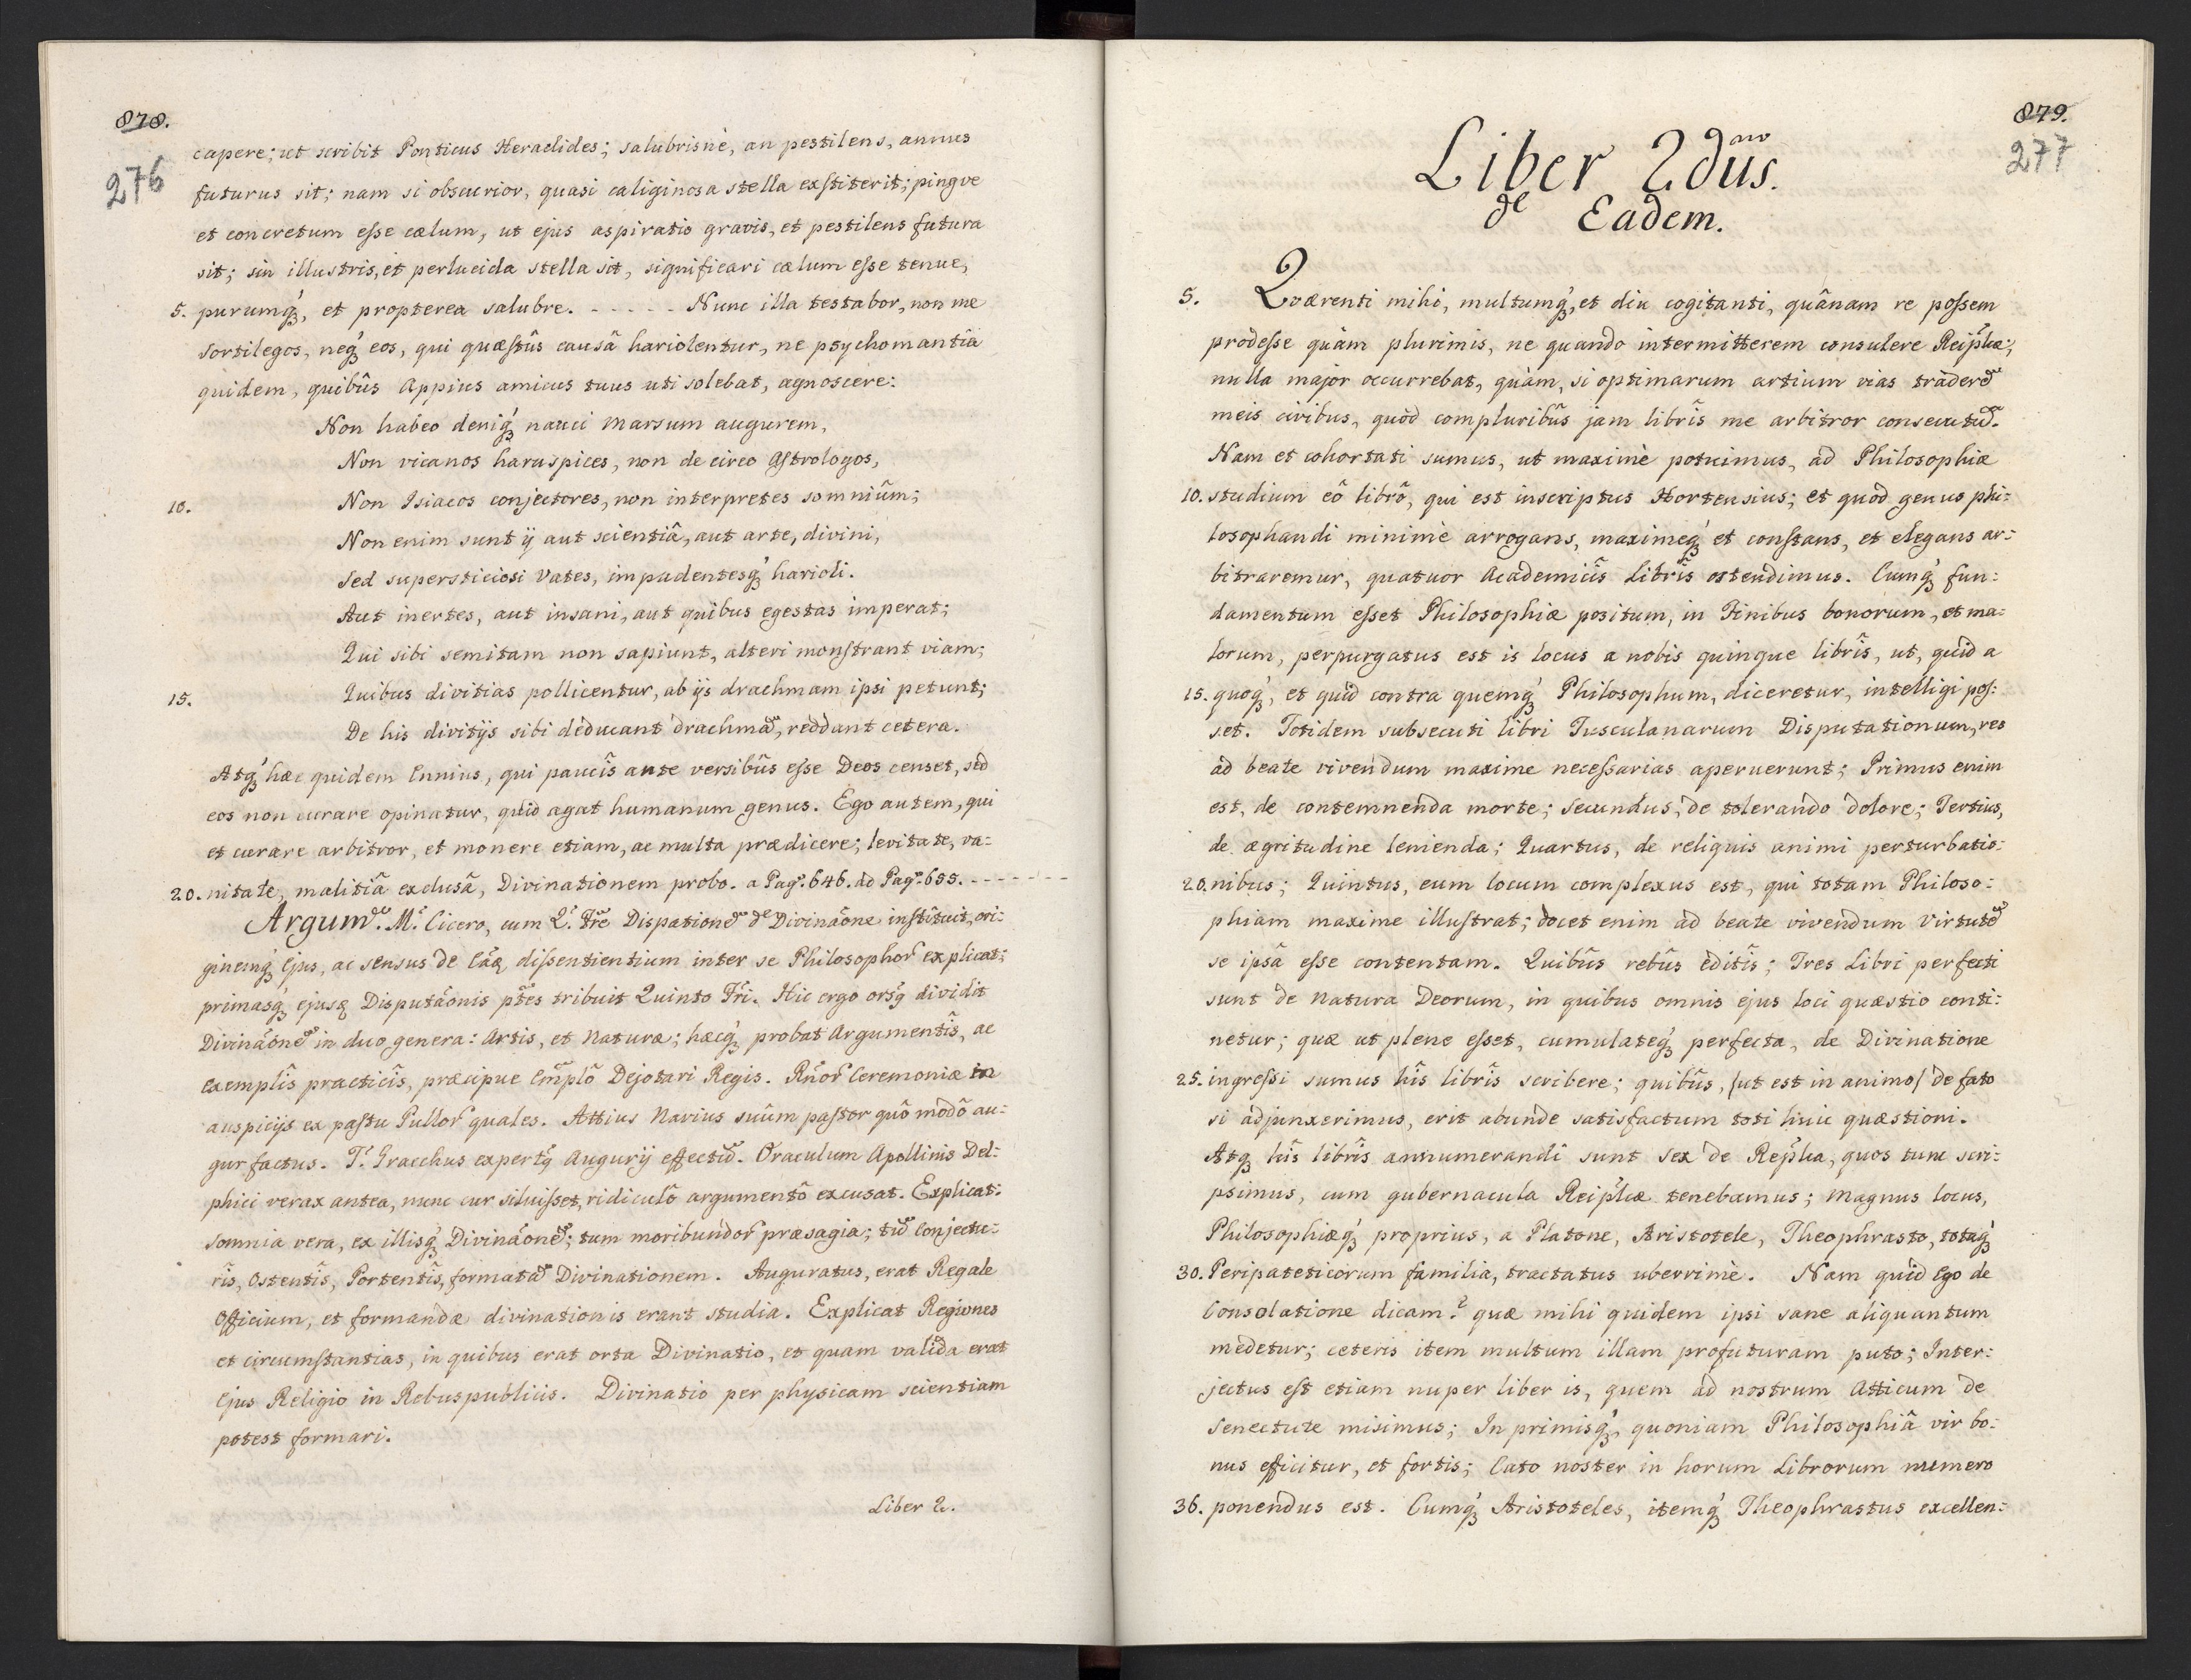 878.
276
capere; ut scribit Ponticus Heraclides; salubrisnè, an pestilens, annus
futurus sit; nam si obscurior, quasi caliginosa stella exstiterit; pingve
et concretum esse cælum, ut ejus aspiratio gravis, et pestilens futura
sit; sin illustris, et perlucida stella sit, significari cælum esse tenue,
5. purumq́ꝫ, et propterea salubre. - - - - - Nunc illa testabor, non me
sortilegos, neq́ꝫ eos, qui quæstûs causâ hariolentur, ne psychomantia
quidem, quibûs Appius amicus tuus uti solebat, agnoscere:
Non habeo deniq́ꝫ nauci Marsum augurem,
Non vicanos haruspices, non de circo Astrologos,
10. Non Isiacos conjectores, non interpretes somniûm;
Non enim sunt ij aut scientiâ, aut arte, divini,
Sed supersticiosi Vates, impudentesq́ꝫ harioli.
Aut inertes, aut insani, aut quibus egestas imperat;
Qui sibi semitam non sapiunt, alteri monstrant viam;
15. Quibus divitias pollicentur, ab ijs drachmam ipsi petunt;
De his divitijs sibi deducant drachmā, reddant cetera.
Atq́ꝫ hæc quidem Ennius, qui paucîs ante versibûs esse Deos censet, sed
eos non curare opinatur, quid agat humanum genus. Ego autem, qui
et curare arbitror, et monere etiam, ac multa prædicere; levitate, va:
20. nitate, malitiâ exclusâ, Divinationem probo. a Pagᵃ. 646. ad Pagᵃ. 655. - - - - - - -
Argumᵗᵘ. M. Cicero, cum Q. Fr̃e Disp̃atione de Divinãone instituit, ori:
ginemq́ꝫ Ejus, ac sensus de Eãq dissentientium inter se Philosophor explicat;
primasq́ꝫ ejusq Disputãonis p̃tes tribuit Quinto Fr̃i. Hic ergo orsq dividit
Divinãonē in duo genera: Artis, et Naturæ; hæcq́ꝫ probat Argumentîs, ac
exemplîs practicîs, præcipue Exmplô Dejotari Regis. Rñor Ceremoniæ in
auspicijs ex pastu Pullor quales. Attius Navius suûm pastor quô modô au:
gur factus. T. Gracchus expertq Augurij effectū. Oraculum Apollinis Del:
phici verax antea, nunc cur siluisset, ridiculô argumentô excusat. Explicat:
somnia vera, ex illisq́ꝫ Divinãonē; tum moribundor præsagia; tū Conjectu:
rîs, Ostentîs, Portentîs, formatā Divinationem. Auguratus, erat Regale
Officium, et formandæ divinationis erant studia. Explicat Regiones
et circumstantias, in quibus erat orta Divinatio, et quam valida erat
Ejus Religio in Rebuspubliciis. Divinatio per physicam scientiam
potest formari.
Liber 2.
879.
277
Liber 2dus.
de Eadem.
5. Quærenti mihi, multumq́ꝫ, et diu cogitanti, quânam re possem
prodesse quàm plurimis, ne quando intermitterem consulere Reip̃læ;
nulla major occurrebat, quàm, si optimarum artium vias traderē
meis civibus, quòd compluribûs jam librîs me arbitror consecutū.
Nam et cohortati sumus, ut maximè potuimus, ad Philosophiæ
10. studium eô librô, qui est inscriptus Hortensius; et quod genus phi:
losophandi minimè arrogans, maximeq́ꝫ et constans, et elegans ar:
bitraremur, quatuor Academicîs Librîs ostendimus. Cumq́ꝫ fun:
damentum esset Philosophiæ positum, in Finibus bonorum, et ma:
lorum, perpurgatus est is locus a nobis quinque librîs, ut, quid a
15. quoq́ꝫ, et quid contra quemq́ꝫ Philosophum, diceretur, intelligi pos:
set. Totidem subsecuti libri Tusculanarum Disputationum, res
ad beate vivendum maxime necessarias aperuerunt; Primus enim
est, de contemnenda morte; Secundus, de tolerando dolore; Tertius,
de ægritudine lenienda; Quartus, de reliquis animi perturbatio:
20. nibus; Quintus, eum locum complexus est, qui totam Philoso:
phiam maxime illustrat; docet enim ad beate vivendum Virtutē
se ipsâ esse contentam. Quibûs rebûs editîs; Tres Libri perfecti
sunt de Natura Deorum, in quibus omnis ejus loci quæstio conti:
netur; quæ ut plene esset, cumulateq́ꝫ perfecta, de Divinatione
25. ingressi sumus hîs librîs scribere; quibûs, /ut est in animo/ de fato
si adjunxerimus, erit abunde satisfactum toti huic quæstioni.
Atqꝫ hîs librîs annumerandi sunt sex de Rep̃lica, quos tunc scri:
psimus, cum gubernacula Reip̃læ tenebamus; Magnus locus,
Philosophiæq́ꝫ proprius, a Platone, Aristotele, Theophrasto, totaq́ꝫ
30. Peripateticorum familia, tractatus uberrimè. Nam quid Ego de
Consolatione dicam? quæ mihi quidem ipsi sane aliquantum
medetur; ceteris item multum illam profuturam puto; Inter:
jectus est etiam nuper liber is, quem ad nostrum Atticum de
Senectute misimus; In primisq́ꝫ, quoniam Philosophiâ vir bo:
nus efficitur, et fortis; Cato noster in horum Librorum numero
36. ponendus est. Cumq́ꝫ Aristoteles, itemq́ꝫ Theophrastus excellen: